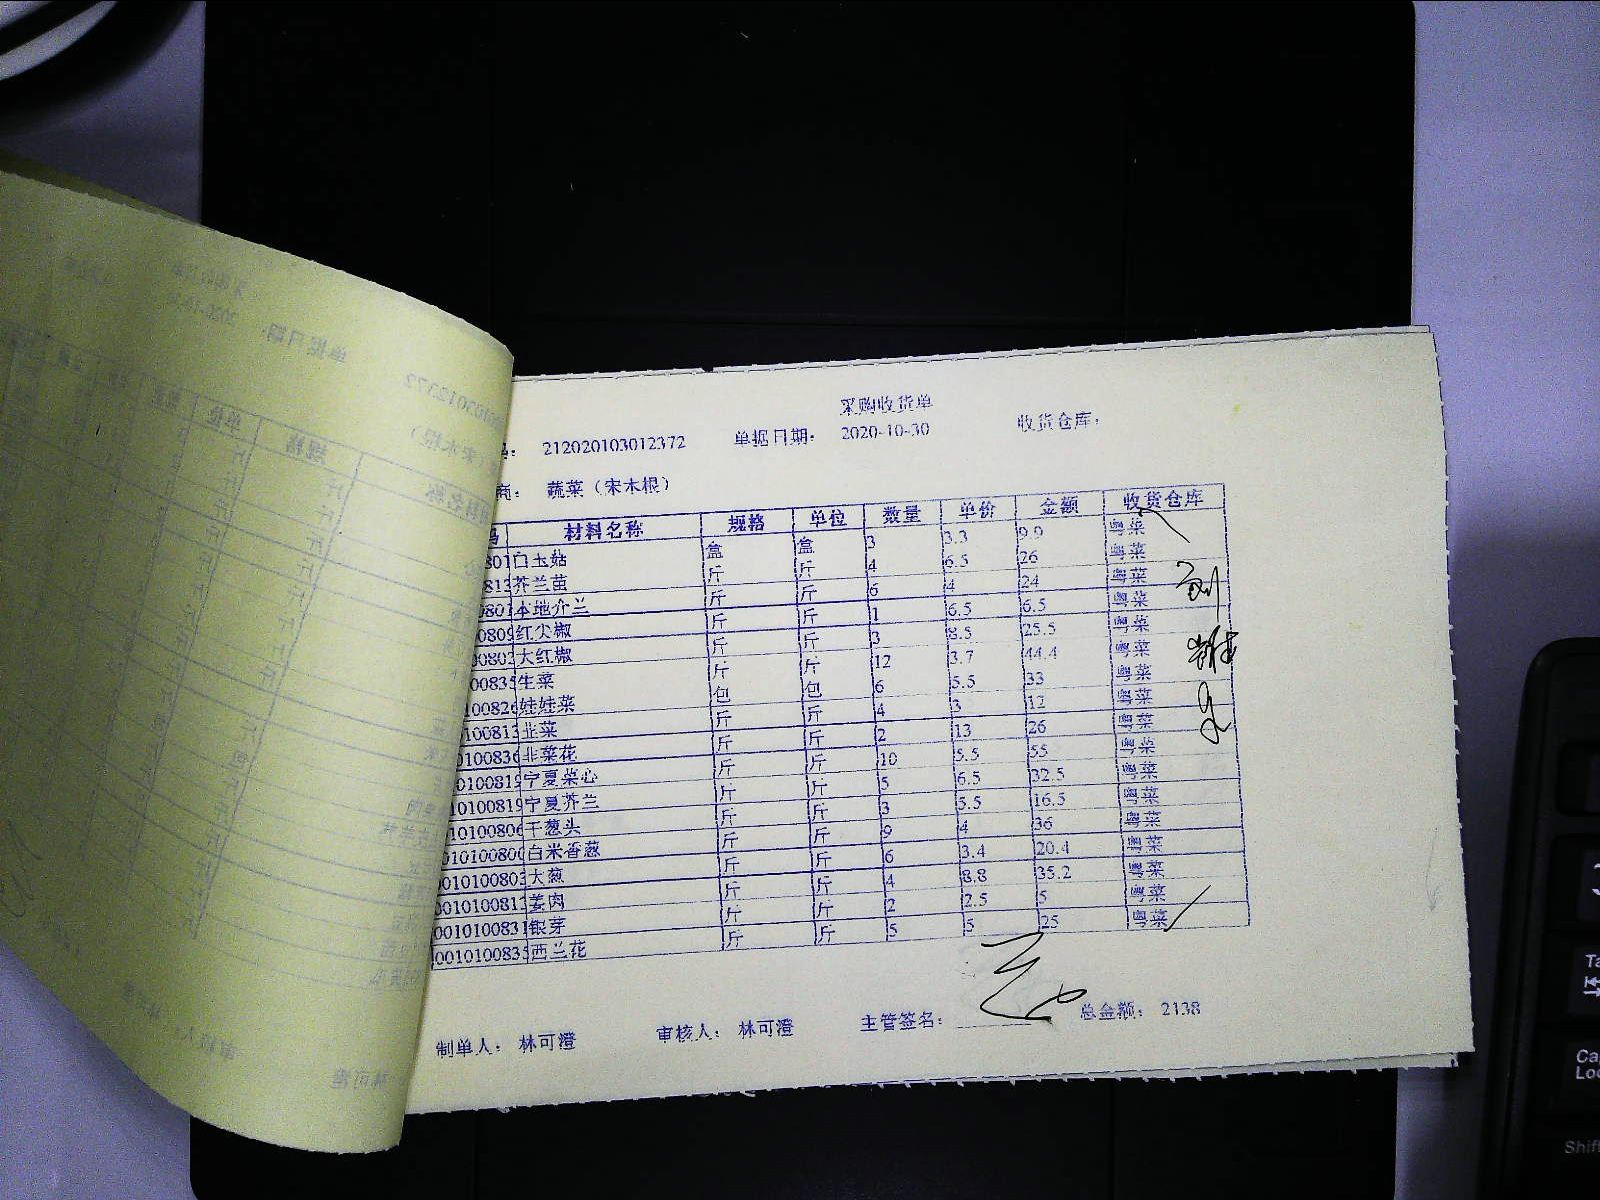 采购收货单
码： 212020103012372 单据日期： 2020-10-30 收货仓库：
商： 蔬菜（宋木根）
码 材料名称 规格 单位 数量 单价 金额 收货仓库
801 白玉菇 盒 盒 3 3.3 9.9 粤菜
813 芥兰苗 斤 斤 4 6.5 26 粤菜
0801 本地介兰 斤 斤 6 4 24 粤菜
00809 红尖椒 斤 斤 1 6.5 6.5 粤菜
00803 大红椒 斤 斤 3 8.5 25.5 粤菜
100835 生菜 斤 斤 12 3.7 44.4 粤菜
100826 娃娃菜 包 包 6 5.5 33 粤菜
100813 韭菜 斤 斤 4 3 12 粤菜
0100836 韭菜花 斤 斤 2 13 26 粤菜
0100819 宁夏菜心 斤 斤 10 5.5 55 粤菜
10100819 宁夏芥兰 斤 斤 5 6.5 32.5 粤菜
10100806 干葱头 斤 斤 3 5.5 16.5 粤菜
010100800 白米香葱 斤 斤 9 4 36 粤菜
010100803 大葱 斤 斤 6 3.4 20.4 粤菜
0010100812 姜肉 斤 斤 4 8.8 35.2 粤菜
0010100831 银芽 斤 斤 2 2.5 5 粤菜
0010100835 西兰花 斤 斤 5 5 25 粤菜
制单人： 林可澄 审核人： 林可澄 主管签名： 总金额： 2138